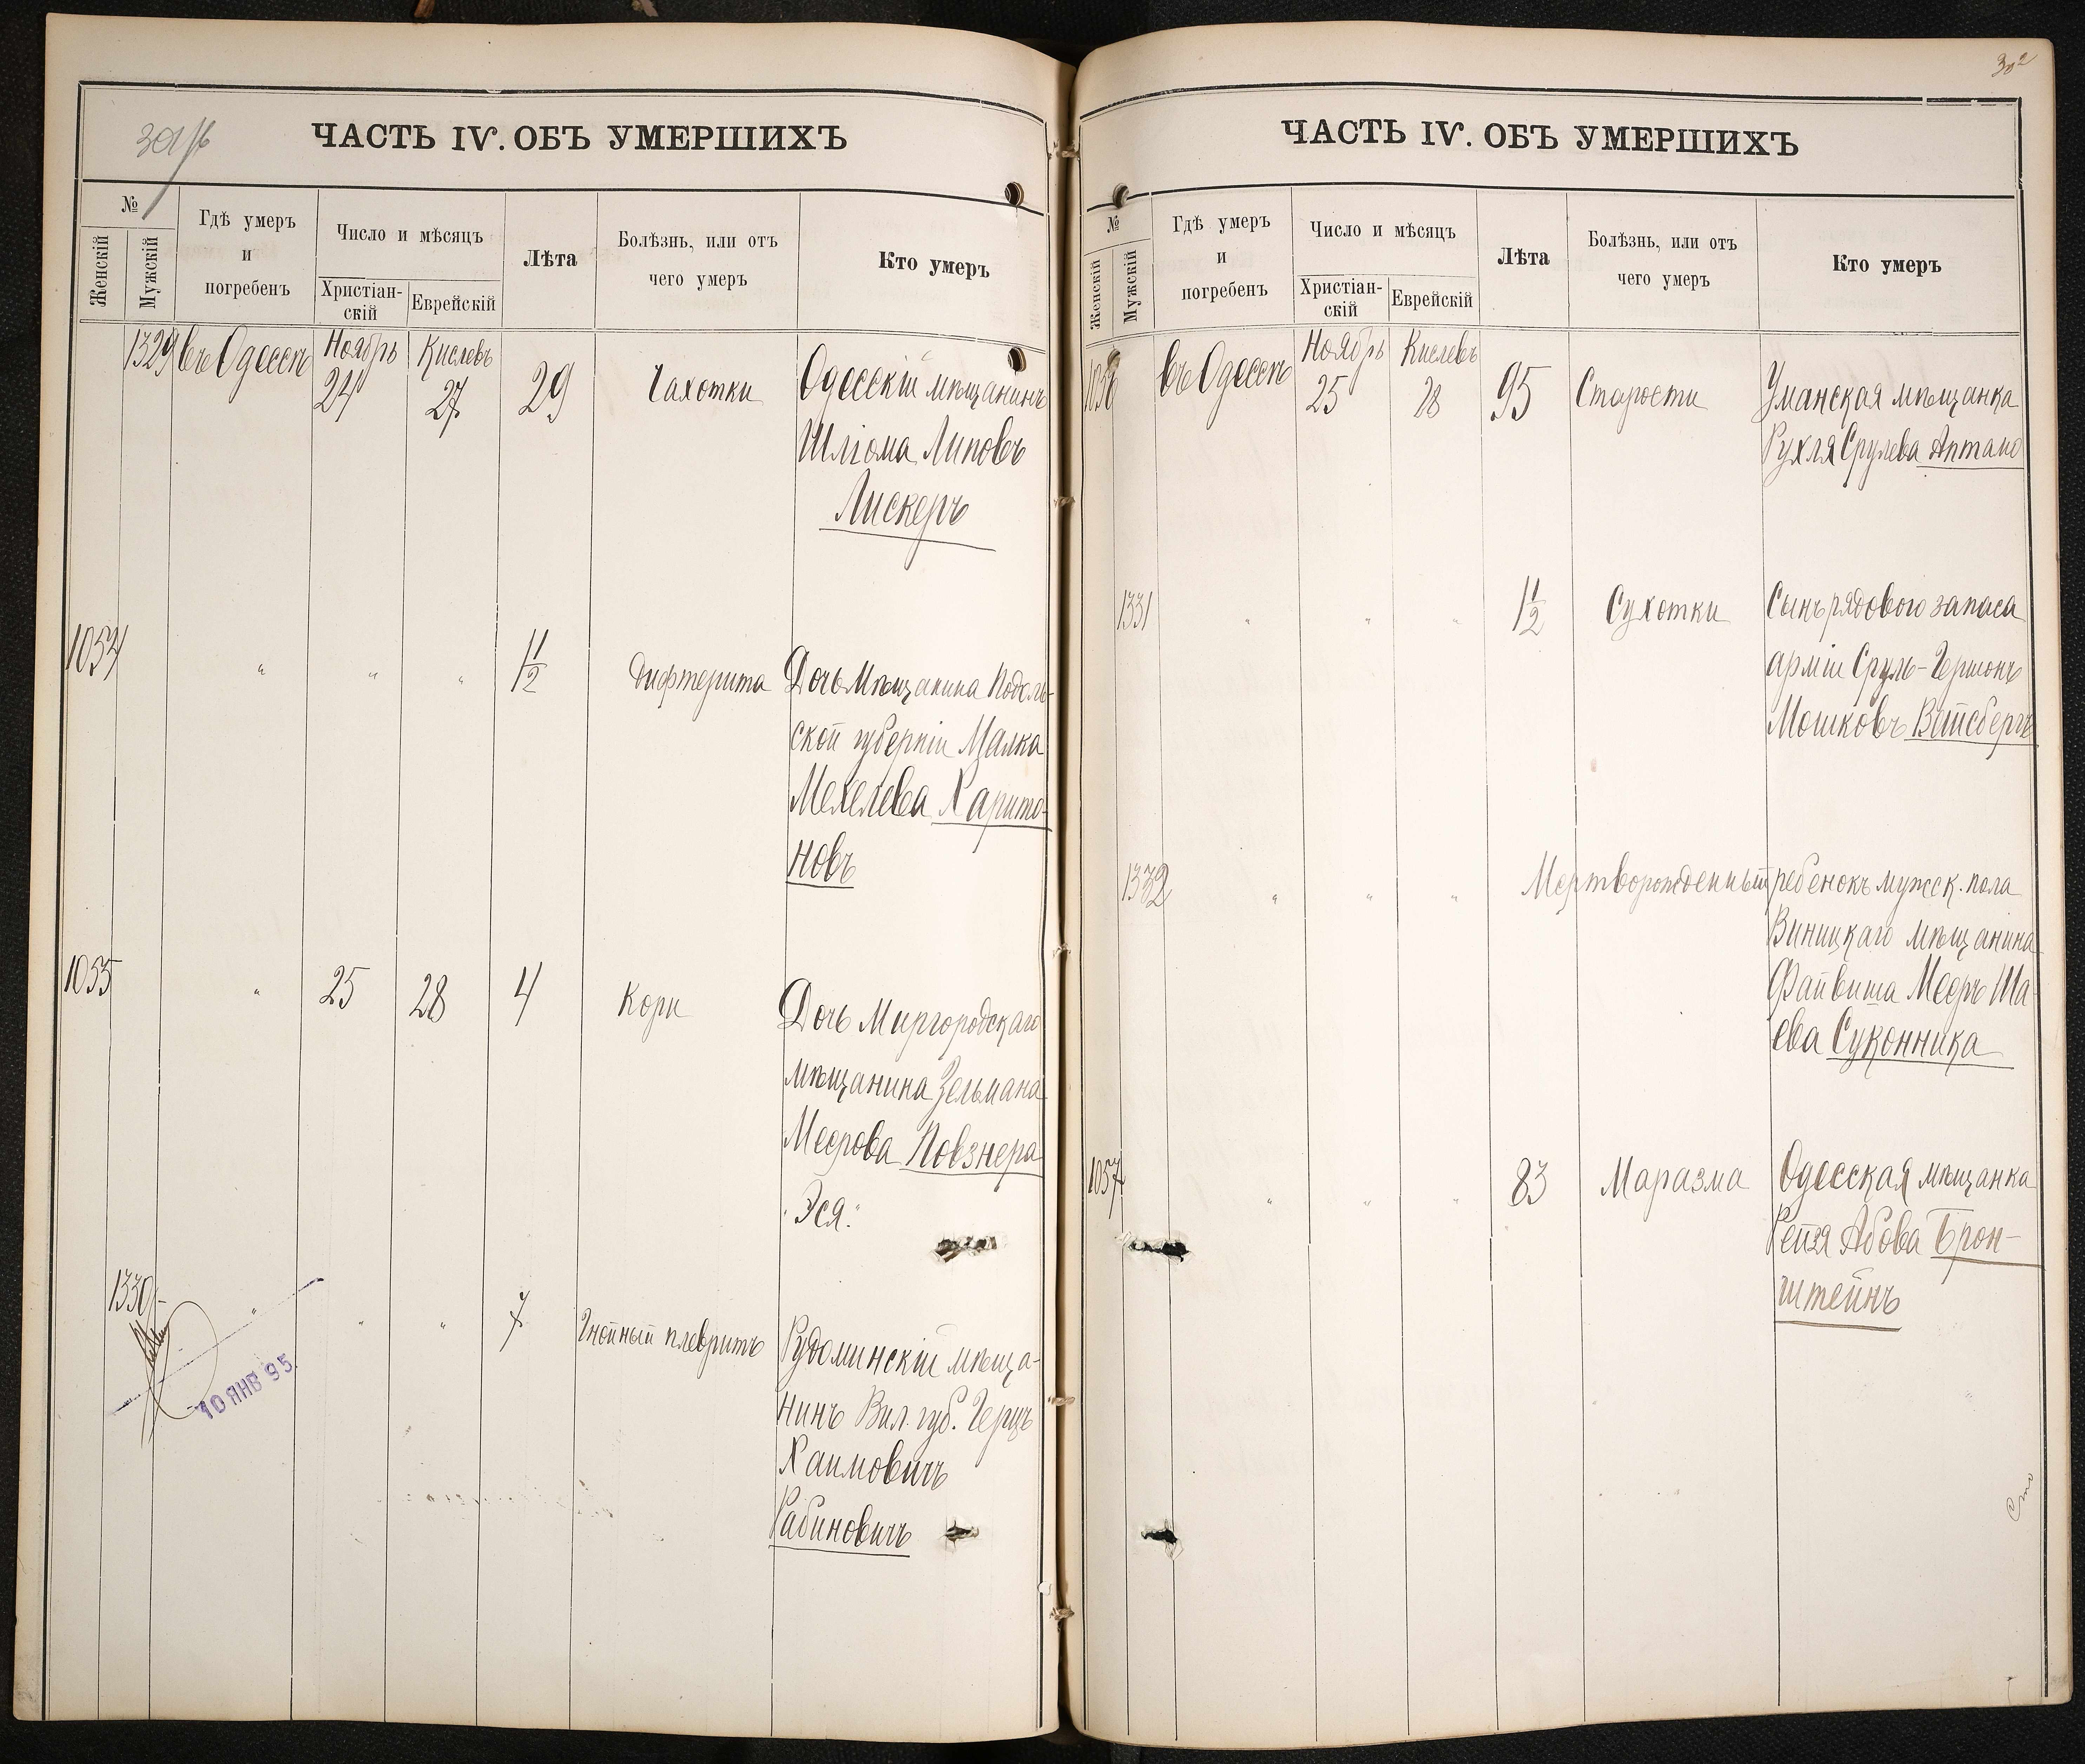 ЧАСТЬ IV. ОБЪ УМЕРШИХЪ
№
Женскій
Мужскій
Гдѣ умеръ
и
погребенъ
Число и мѣсяцъ
Христіан-
скій
Еврейскій
Лѣта
Болѣзнь, или отъ
чего умеръ
Кто умеръ
1329 въ Одессѣ Ноябрь 24 Кислевъ 27 29 Чахотки Одесскій мѣщанинъ
Шліома Липовъ
Лискеръ
1054 " " " 1 1/2 Дифтерита Дочь Мѣщанина Подоль-
ской губерніи Малка
Мехелева Харито-
новъ
1055 " 25 28 4 Кори Дочь Миргородскаго
мѣщанина Зельмана
Меерова Повзнера
"Эся."
1330 " " " 7 Гнойный плевритъ Рудоминскій мѣща-
нинъ Вил. губ. Герцъ
Хаимовичъ
Рабиновичъ
10 ЯНВ 95
302
ЧАСТЬ IV. ОБЪ УМЕРШИХЪ
№
Женскій
Мужскій
Гдѣ умеръ
и
погребенъ
Число и мѣсяцъ
Христіан-
скій
Еврейскій
Лѣта
Болѣзнь, или отъ
чего умеръ
Кто умеръ
1056 въ Одессѣ Ноябрь 25 Кислевъ 28 95 Старости Уманская мѣщанка
Рухля Срулева
1331 " " " 1 1/2 Сухотки Сынъ рядового запаса
арміи Сруль-Гершонъ
Мошковъ Вейсбергъ
1332 " " " Мертворожденный ребенокъ мужск. пола
Виницкаго мѣщанина
Файвиша Мееръ Ша
ева Суконника
1057 " " " 83 Маразма Одесская мѣщанка
Рейзя Абова Брон-
штейнъ